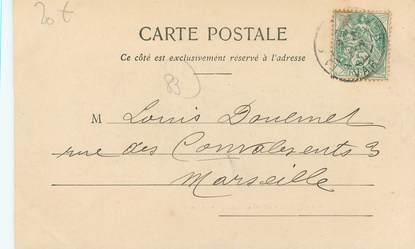 20 €
CARTE POSTALE
Ce côté est exclusivement réservé à l'adresse
83
M Louis
rue des Convalescents 3
Marseille
VAR